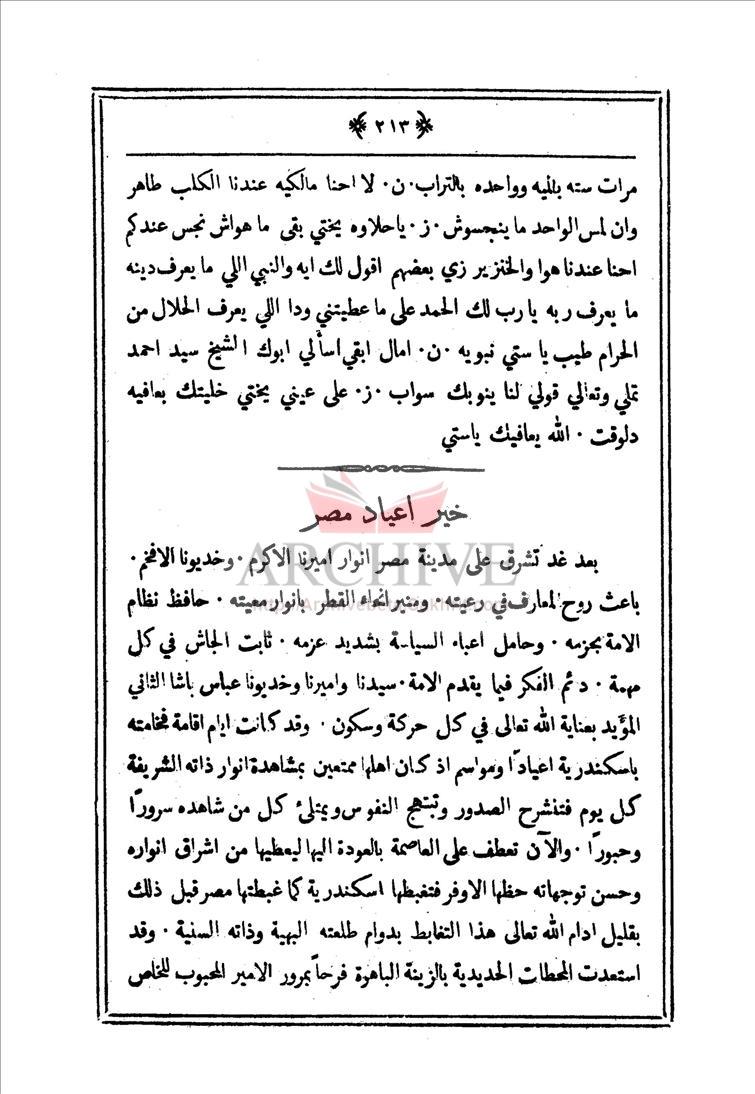 ﴿ ٢١٣ ﴾
مرات سته بالميه وواحده بالتراب ٠ ن ٠ لا احنا مالكيه عندنا الكلب طاهر
وان لمس الواحد ما ينجسوش ٠ ز ٠ ياحلاوه يختي بقى ما هواش نجس عندكم
احنا عندنا هوا والخنزير زي بعضهم اقول لك ايه والنبي اللي ما يعرف دينه
ما يعرف ربه يا رب لك الحمد على ما عطيتني ودا اللي يعرف الحلال من
الحرام طيب يا ستي نبويه ٠ ن ٠ امال ابقي اسألي ابوك الشيخ سيد احمد
تملي وتعالي قولي لنا ينوبك سواب ٠ ز ٠ على عيني يختي خليتك بعافيه
دلوقت ٠ الله يعافيك ياستي
خير اعياد مصر
بعد غد تشرق على مدينة مصر انوار اميرنا الاكرم ٠ وخديونا الافخم ٠
باعث روح المعارف في رعيته ٠ ومنير انحاء القطر بانوار معيته ٠ حافظ نظام
الامة بحزمه ٠ وحامل اعباء السياسة بشديد عزمه ٠ ثابت الجاش في كل
مهمة ٠ دئم الفكر فيما يقدم الامة ٠ سيدنا واميرنا وخديونا عباس باشا الثاني
المؤيد بعناية الله تعالى في كل حركة وسكون ٠ وقد كانت ايام اقامة فخامته
باسكندرية اعيادًا ومواسم اذ كان اهلها ممتعين بمشاهدة انوار ذاته الشريفة
كل يوم فتنشرح الصدور وتبتهج النفوس ويمتلئ كل من شاهده سرورًا
وحبورًا ٠ والآن تعطف على العاصمة بالعودة اليها ليعطيها من اشراق انواره
وحسن توجهاته حظها الاوفر فتغبظها اسكندرية كما غبطتها مصر قبل ذلك
بقليل ادام الله تعالى هذا التغابط بدوام طلعته البهية وذاته السنية ٠ وقد
استعدت المحطات الحديدية بالزينة الباهرة فرحاً بمرور الامير المحبوب للخاص
ARCHIVE